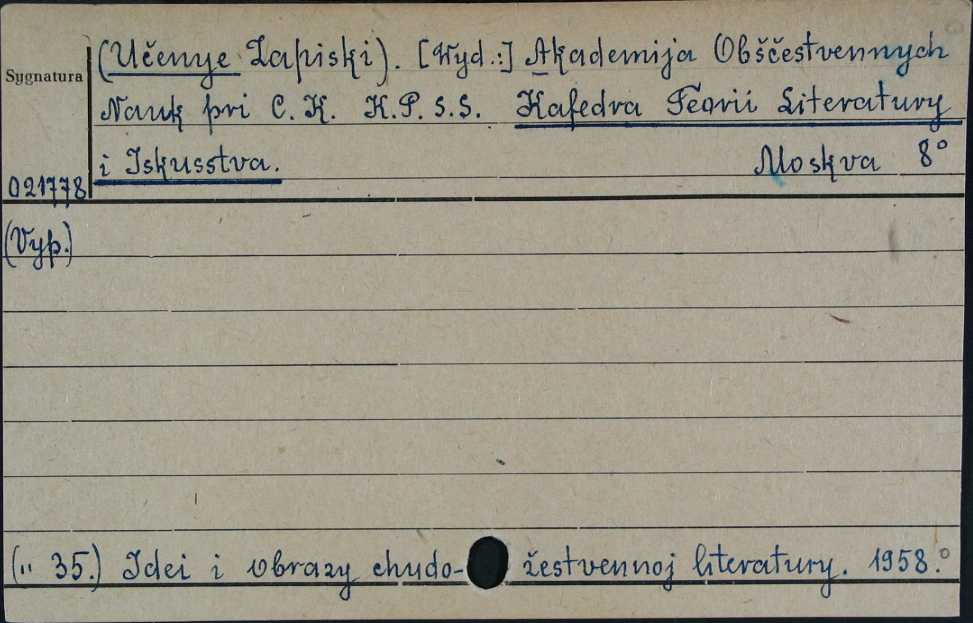 (Učenye Zapiski). [Wyd.:] Akademija Obščestvennych
Sygnatura
Nauk pri C. K. K.P.S.S. Kafedra Teorii Literatury
i Iskusstva. Moskva 8°
021778
(Vyp.)
(" 35.) Idei i obrazy chudo- žestvennoj literatury. 1958.°